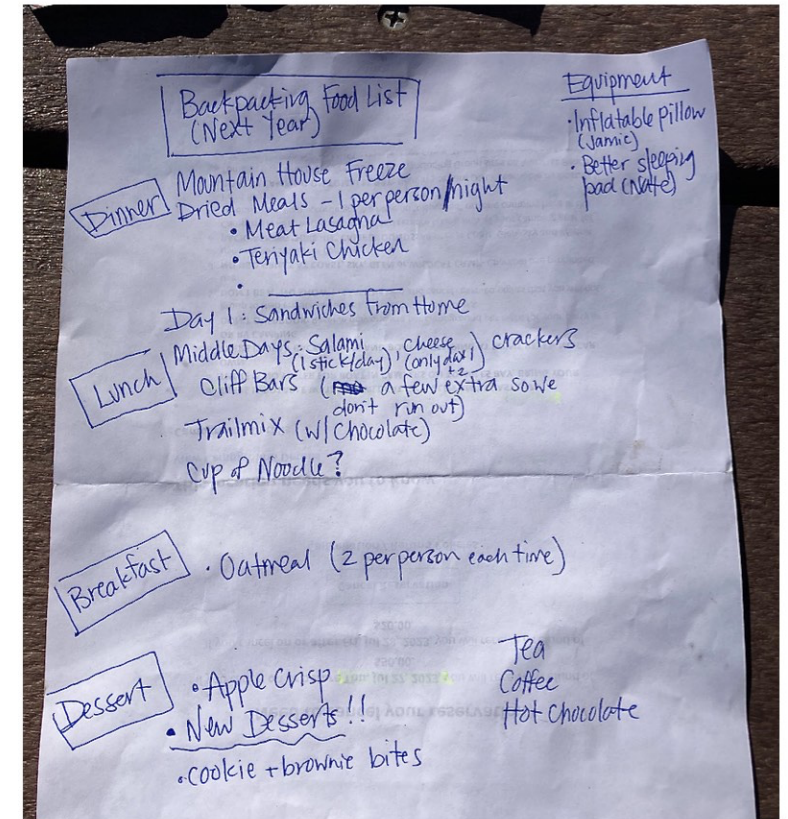 Backpacking Food List
(Next Year)
Equipment
• Inflatable pillow
(Jamie)
• Better sleeping
pad (Nate)
Dinner
Mountain House Freeze
Dried Meals - 1 per person/night
• Meat Lasagna
• Teriyaki Chicken
•
Lunch
Day 1: Sandwiches from Home
Middle Days: Salami, cheese, crackers
(1 stick/day) (only day 1
+2)
Cliff Bars (a few extra so we
don't run out)
Trailmix (w/ Chocolate)
Cup of Noodle?
Breakfast
• Oatmeal (2 per person each time)
Dessert
• Apple Crisp
• New Desserts!!
• cookie + brownie bites
Tea
Coffee
Hot Chocolate